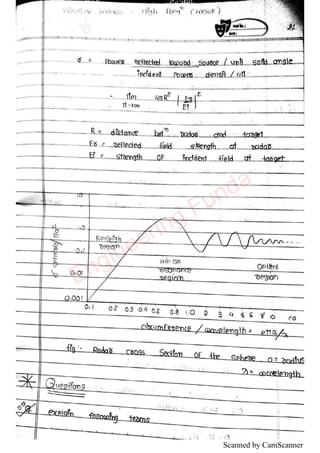 21
σ = Power reflected toward source / unit solid angle
incident power density / 4π
= lim 4πR² |Er/Ei|²
R→∞
R = distance betn radar and target
Er = reflected field strength at radar
Ei = strength OF incident field at target
10
1.0
0.1
0.01
0.001
σ
Rayleigh
region
mie or
resonance
region
optical
region
0.1 0.2 0.3 0.4 0.5 0.8 1.0 2 3 4 5 6 8 10
circumference / wavelength = 2πa/λ
fig :- Radar cross section OF the sphere a = radius
λ = wavelength
Questions
explain following terms
Engineering Funda
Scanned by CamScanner